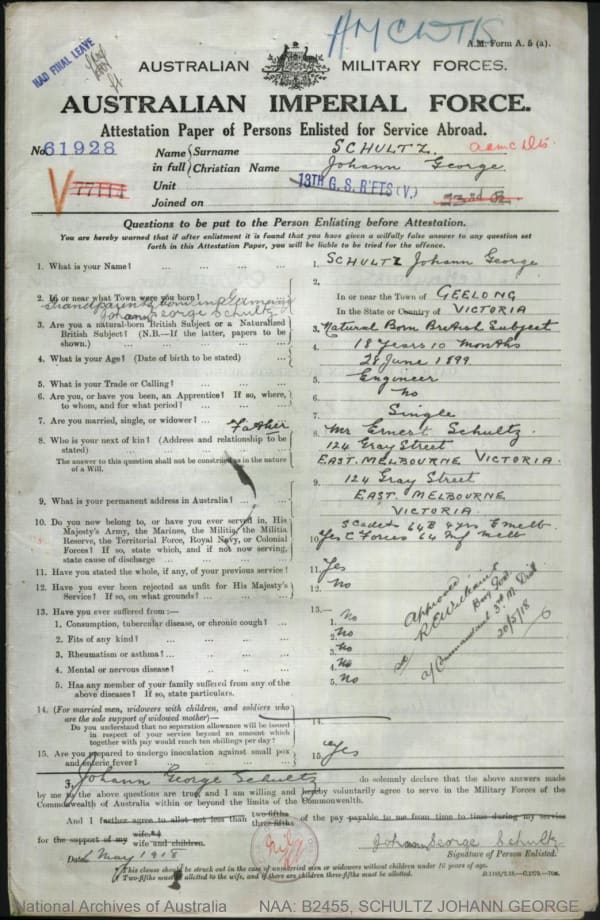 HAD FINAL LEAVE
AMCWTK
A.M. Form A. 5 (a).
AUSTRALIAN MILITARY FORCES.
AUSTRALIAN IMPERIAL FORCE.
Attestation Paper of Persons Enlisted for Service Abroad.
No. 61928 Name in full Surname SCHULTZ
Christian Name Johann George
V 77111 Unit 13TH G. S. R'FTS (V.)
Joined on
Questions to be put to the Person Enlisting before Attestation.
You are hereby warned that if after enlistment it is found that you have given a wilfully false answer to any question set
forth in this Attestation Paper, you will be liable to be tried for the offence.
1. What is your Name? ... ... ... ... 1. SCHULTZ Johann George
2. In or near what Town were you born? 2. In or near the Town of GEELONG
Grandparents born in Germany
Johann George Schultz
In the State or Country of VICTORIA
3. Are you a natural-born British Subject or a Naturalized
British Subject? (N.B.—If the latter, papers to be
shown.) 3. Natural Born British Subject
4. What is your Age? (Date of birth to be stated) ... 4. 18 Years 10 Months
28 June 1899.
5. What is your Trade or Calling? ... ... ... 5. Engineer
6. Are you, or have you been, an Apprentice? If so, where,
to whom, and for what period? 6. No
7. Are you married, single, or widower? ... 7. Single
Father
8. Who is your next of kin? (Address and relationship to be
stated) 8. Mr Ernest Schultz.
The answer to this question shall not be construed as in the nature
of a Will.
124 Gray Street
EAST. MELBOURNE VICTORIA.
9. What is your permanent address in Australia? ... 9. 124 Gray Street
EAST. MELBOURNE
VICTORIA.
10. Do you now belong to, or have you ever served in, His
Majesty's Army, the Marines, the Militia, the Militia
Reserve, the Territorial Force, Royal Navy, or Colonial
Forces? If so, state which, and if not now serving,
state cause of discharge
S Cadets 64B 4 yrs E Melb.
10. Yes C Forces 64 Inf Melb
11. Have you stated the whole, if any, of your previous service? 11. Yes
12. Have you ever been rejected as unfit for His Majesty's
Service? If so, on what grounds? 12. No
13. Have you ever suffered from:— 13.—
1. Consumption, tubercular disease, or chronic cough? ... 1. No
2. Fits of any kind? 2. No
3. Rheumatism or asthma? 3. No
4. Mental or nervous disease? 4. No
5. Has any member of your family suffered from any of the
above diseases? If so, state particulars. 5. No
Approved
a/Commandant 3rd M. Dist
20/5/18
14. (For married men, widowers with children, and soldiers who
are the sole support of widowed mother)—
Do you understand that no separation allowance will be issued
in respect of your service beyond an amount which
together with pay would reach ten shillings per day? 14.
15. Are you prepared to undergo inoculation against small pox
and enteric fever? 15. Yes
I, Johann George Schultz do solemnly declare that the above answers made
by me to the above questions are true, and I am willing and hereby voluntarily agree to serve in the Military Forces of the
Commonwealth of Australia within or beyond the limits of the Commonwealth.
And I further agree to allot not less than two-fifths three-fifths of the pay payable to me from time to time during my service
for the support of my wife. wife and children.
Johann George Schultz
Date May 1918
Signature of Person Enlisted.
This clause should be struck out in the case of unmarried men or widowers without children under 16 years of age.
Two-fifths must be allotted to the wife, and if there are children three-fifths must be allotted.
National Archives of Australia NAA: B2455, SCHULTZ JOHANN GEORGE